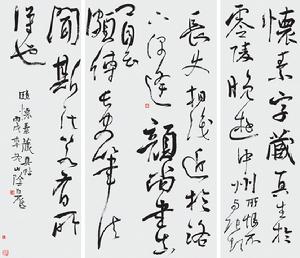 懷素字藏真生於
零陵晚遊中州所恨不与張顛
長史相識近於洛
下偶逢顏尚書真
卿自云
頗傳長史筆法
聞斯法若有所
得也
臨懷素藏真帖